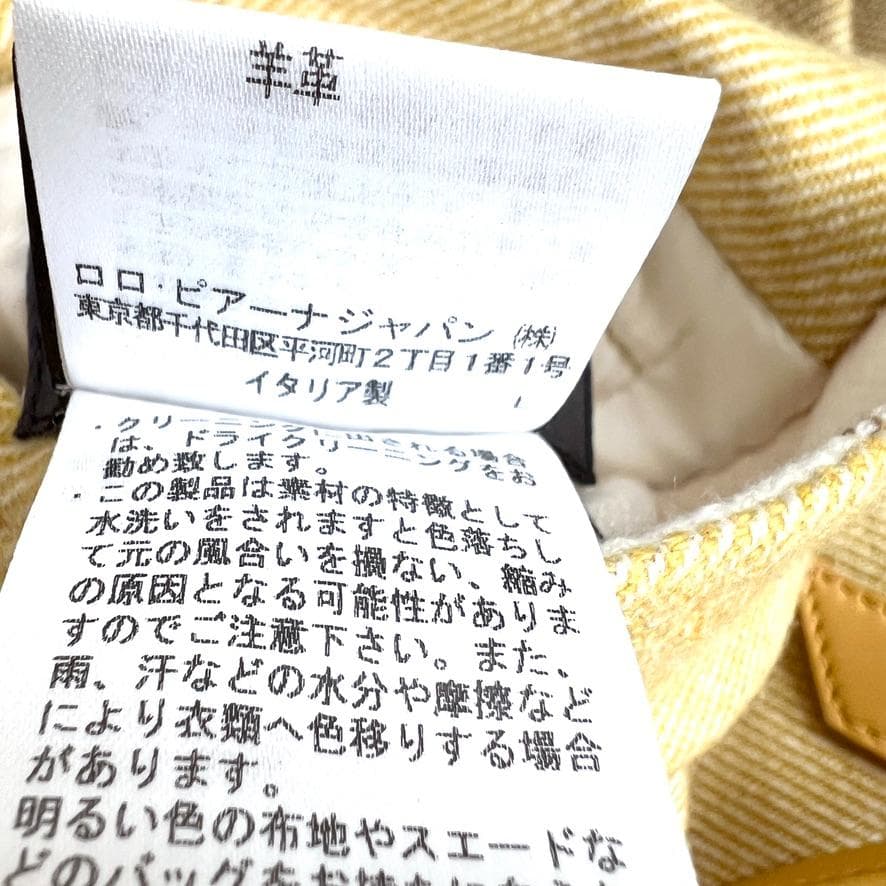 羊革
ロロ・ピアーナジャパン (株)
東京都千代田区平河町2丁目1番1号
イタリア製
・クリーニングに出される場合
は、ドライクリーニングをお
勧め致します。
・この製品は素材の特徴として
水洗いをされますと色落ちし
て元の風合いを損ない、縮み
の原因となる可能性がありま
すのでご注意下さい。また、
雨、汗などの水分や摩擦など
により衣類へ色移りする場合
があります。
明るい色の布地やスエードな
どのバッグをお持ちになら